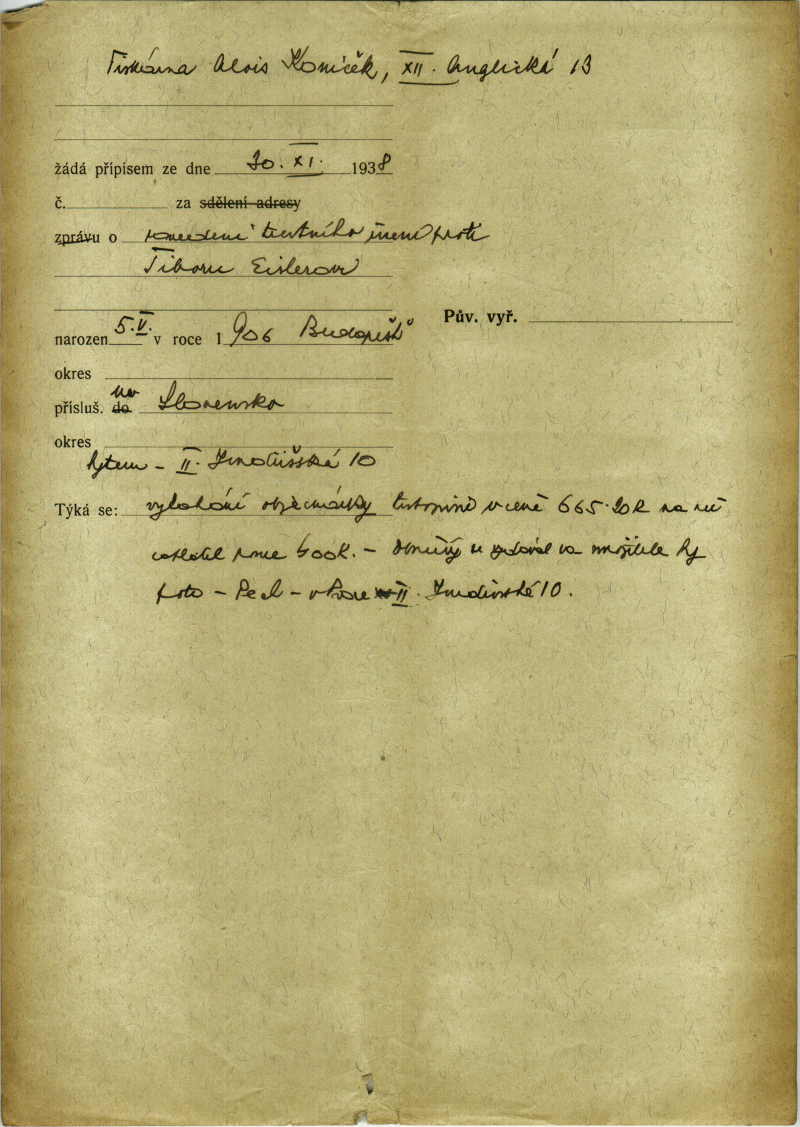 Tiskárna Alois Koníček, XII. Anglická 13
žádá přípisem ze dne 30. XI. 1938
č. za sdělení adresy
zprávu o zavedení trestního řízení proti
Tiboru Eislerovi
narozen 5.V. v roce 1906 Budapešť
okres
přísluš. do na Slovensko
okres
bytem - II. Jindřišská 10
Týká se: vylákání objednávky tiskopisů v ceně 665.20 K na niž
zaplatil pouze 400K. -
foto - - v Praze II. Jindřišská 10.
Pův. vyř.